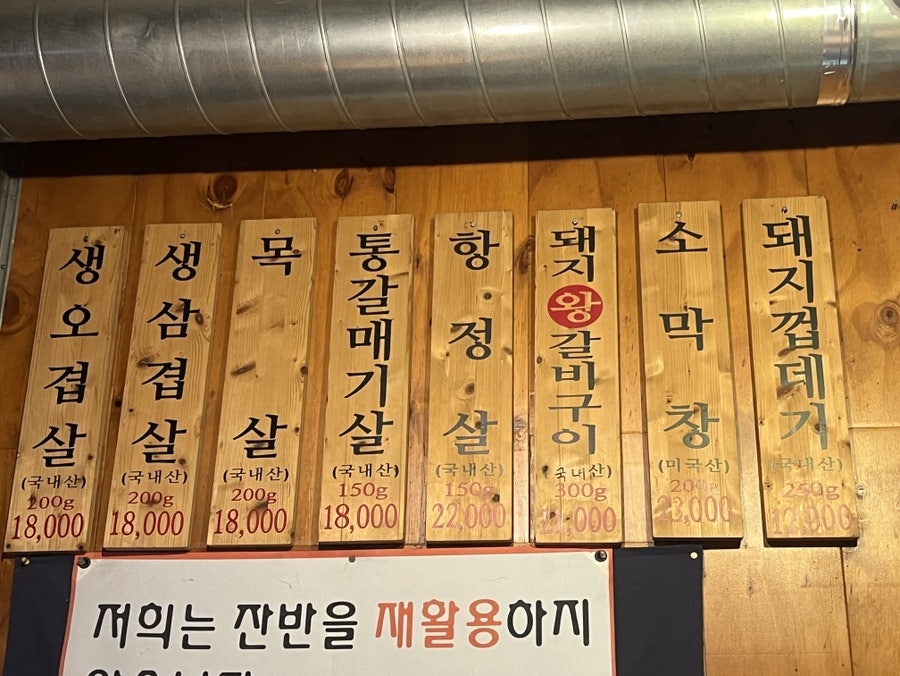 생오겹살
(국내산)
200g
18,000
생삼겹살
(국내산)
200g
18,000
목살
(국내산)
200g
18,000
통갈매기살
(국내산)
150g
18,000
항정살
(국내산)
150g
22,000
돼지왕갈비구이
(국내산)
300g
21,000
소막창
(미국산)
200g
23,000
돼지껍데기
(국내산)
250g
12,000
저희는 잔반을 재활용하지